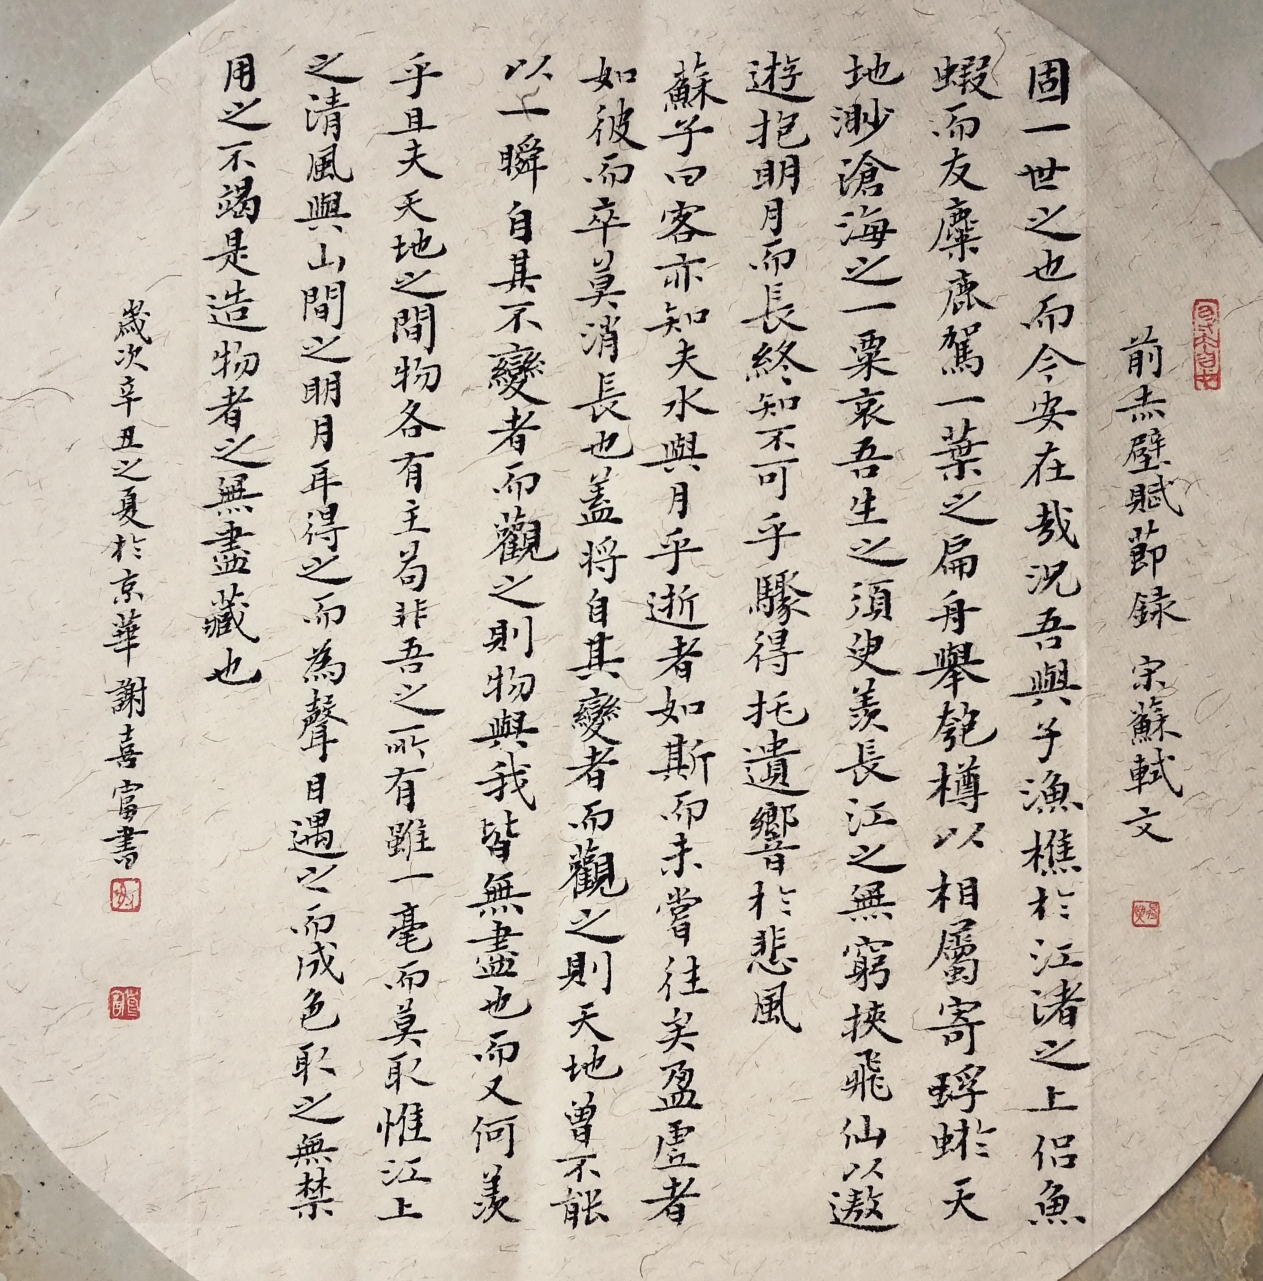 前赤壁賦節録 宋蘇軾文
固一世之也而今安在哉況吾與子漁樵於江渚之上侣魚
蝦而友麋鹿駕一葉之扁舟舉匏樽以相屬寄蜉蝣於天
地渺滄海之一粟哀吾生之須臾羨長江之無窮挾飛仙以遨
遊抱明月而長終知不可乎驟得托遺響於悲風
蘇子曰客亦知夫水與月乎逝者如斯而未嘗往矣盈虛者
如彼而卒莫消長也蓋將自其變者而觀之則天地曾不能
以一瞬自其不變者而觀之則物與我皆無盡也而又何羨
乎且夫天地之間物各有主苟非吾之所有雖一毫而莫取惟江上
之清風與山間之明月耳得之而為聲目遇之而成色取之無禁
用之不竭是造物者之無盡藏也
歲次辛丑之夏於京華謝喜富書